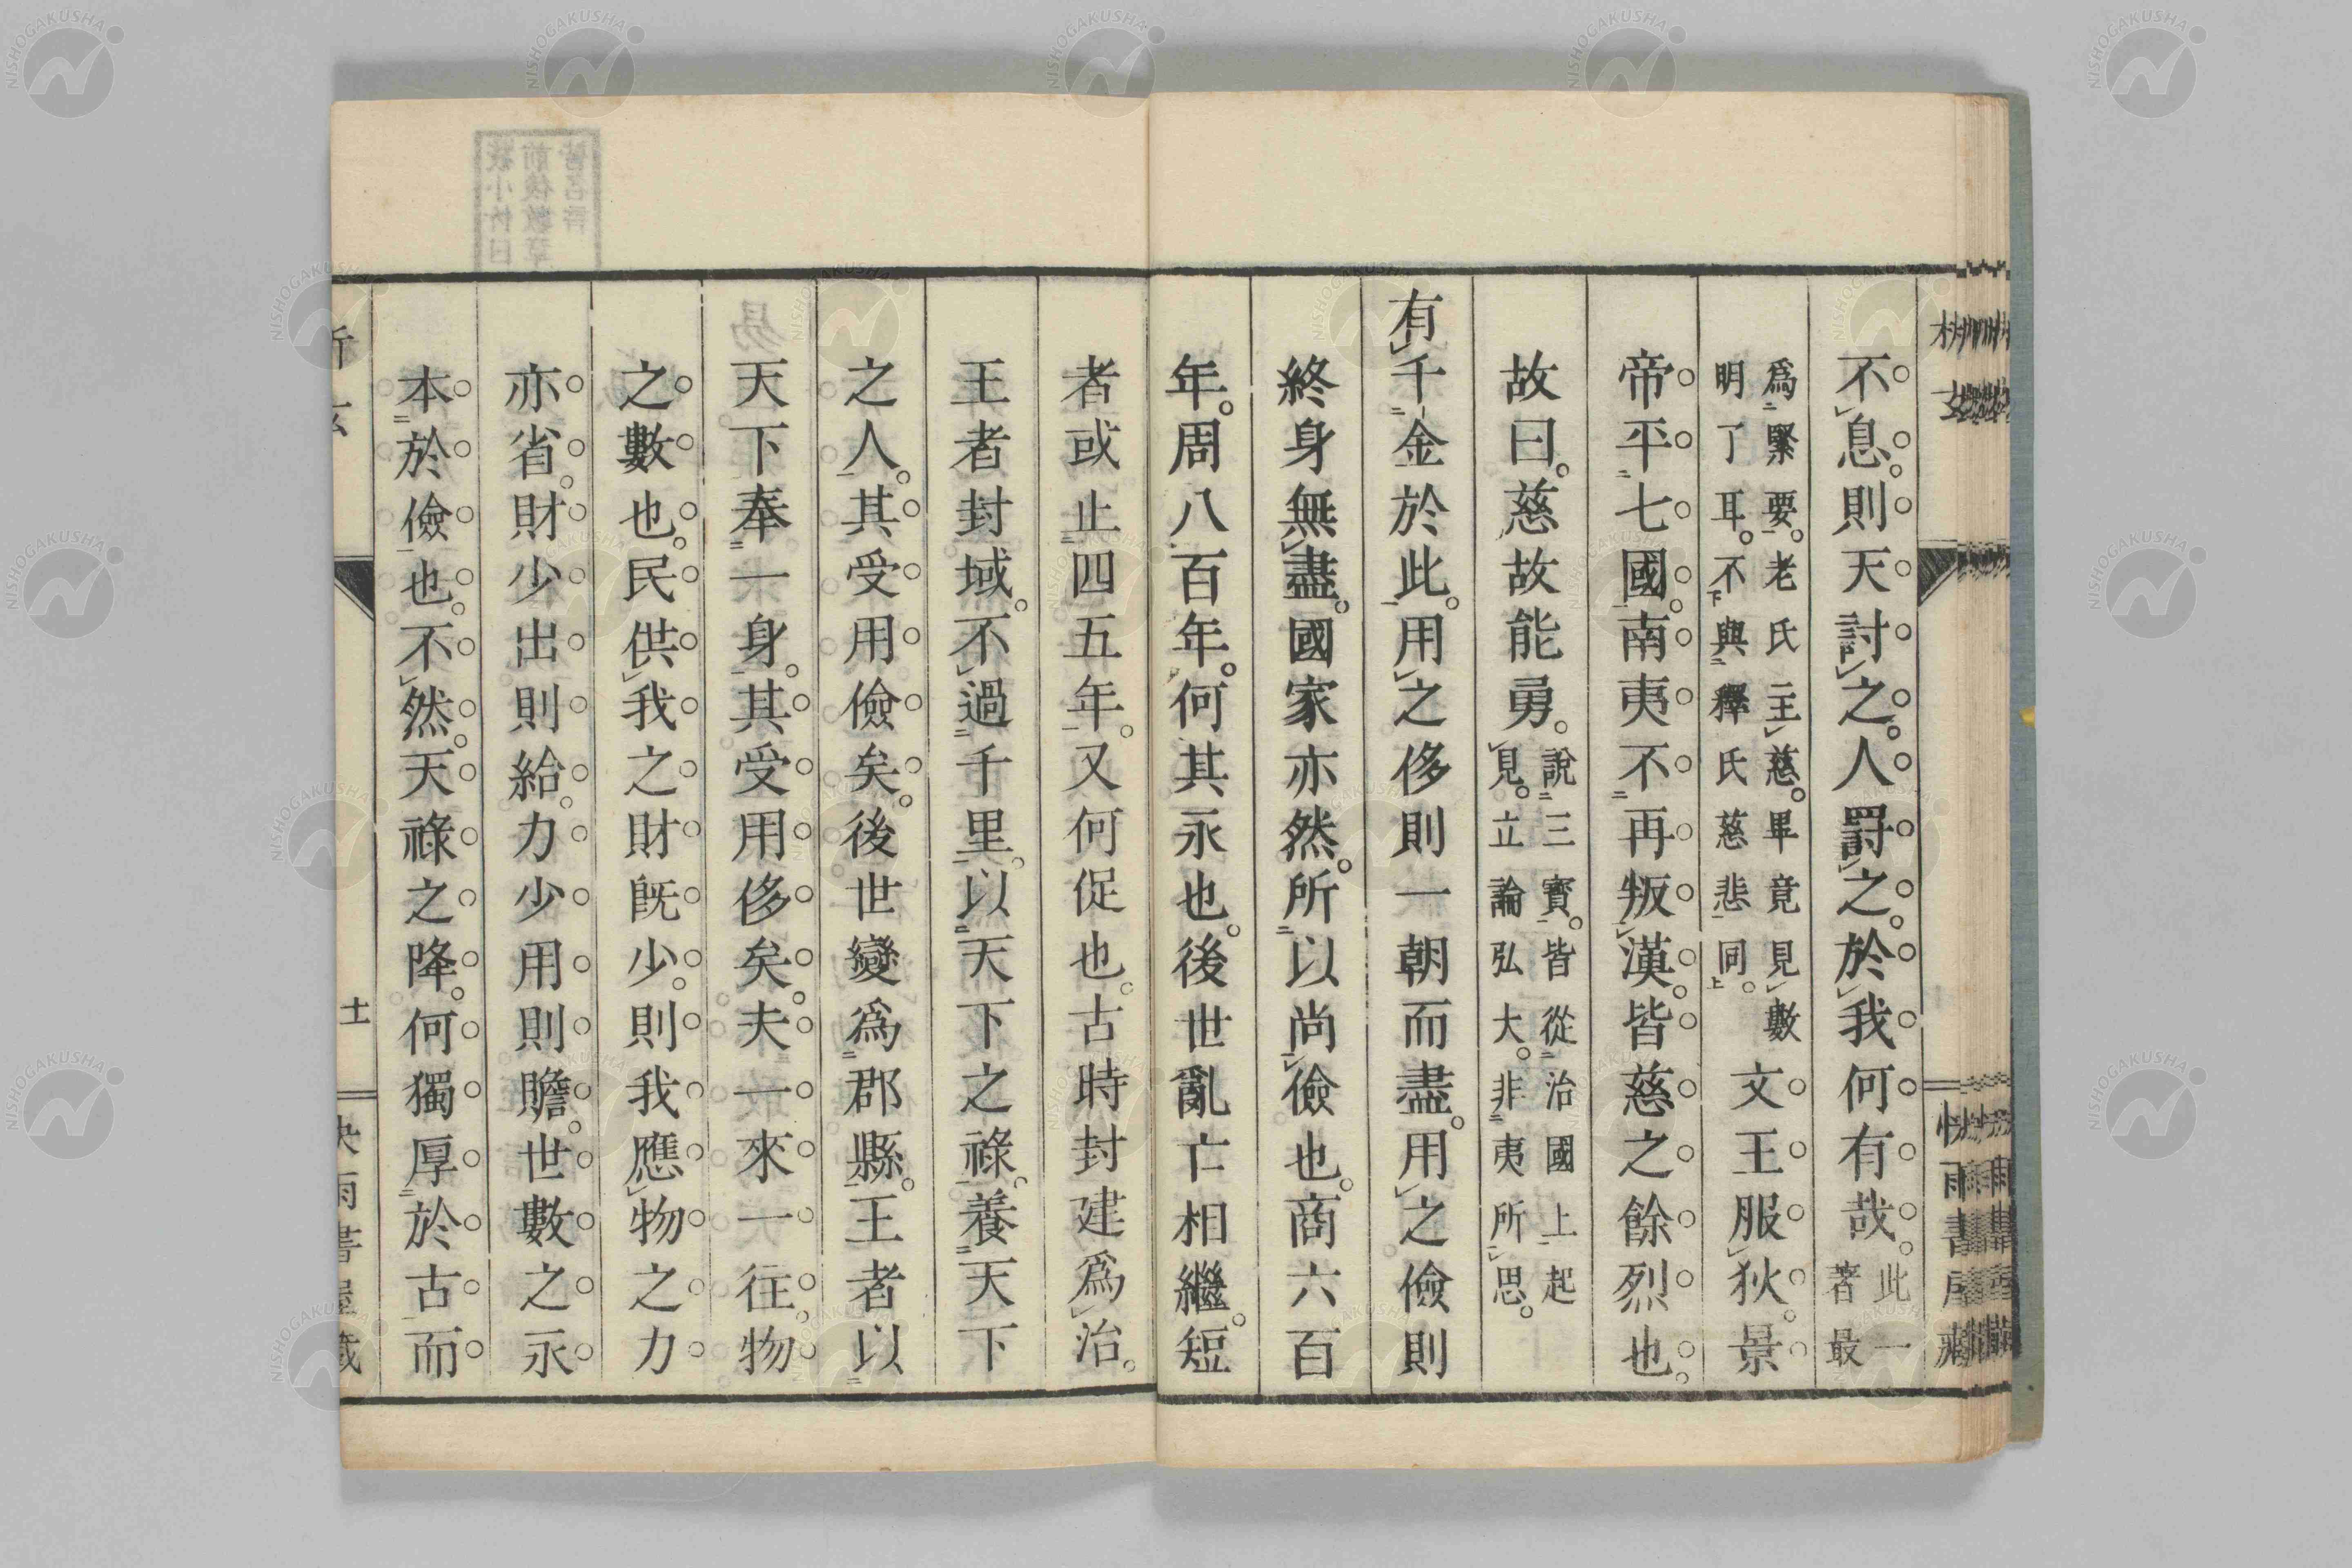 不息。則天討之。人罰之。於我何有哉。此一著最
爲緊要。老氏主慈。畢竟見數明了耳。不與釋氏慈悲同。文王服狄。景
帝平七國。南夷不再叛漢。皆慈之餘烈也。
故曰。慈故能勇。說三寳。皆從治國上起見。立論弘大。非夷所思。
有千金於此。用之侈則一朝而盡。用之儉則
終身無盡。國家亦然。所以尚儉也。商六百
年。周八百年。何其永也。後世亂亡相繼。短
者或止四五年。又何促也。古時封建爲治。
王者封域。不過千里。以天下之祿。養天下
之人。其受用儉矣。後世變爲郡縣。王者以
天下奉一身。其受用侈矣。夫一來一往。物
之數也。民供我之財既少。則我應物之力
亦省。財少出則給。力少用則贍。世數之永
本於儉也。不然。天祿之降。何獨厚於古而
士
NISHOGAKUSHA